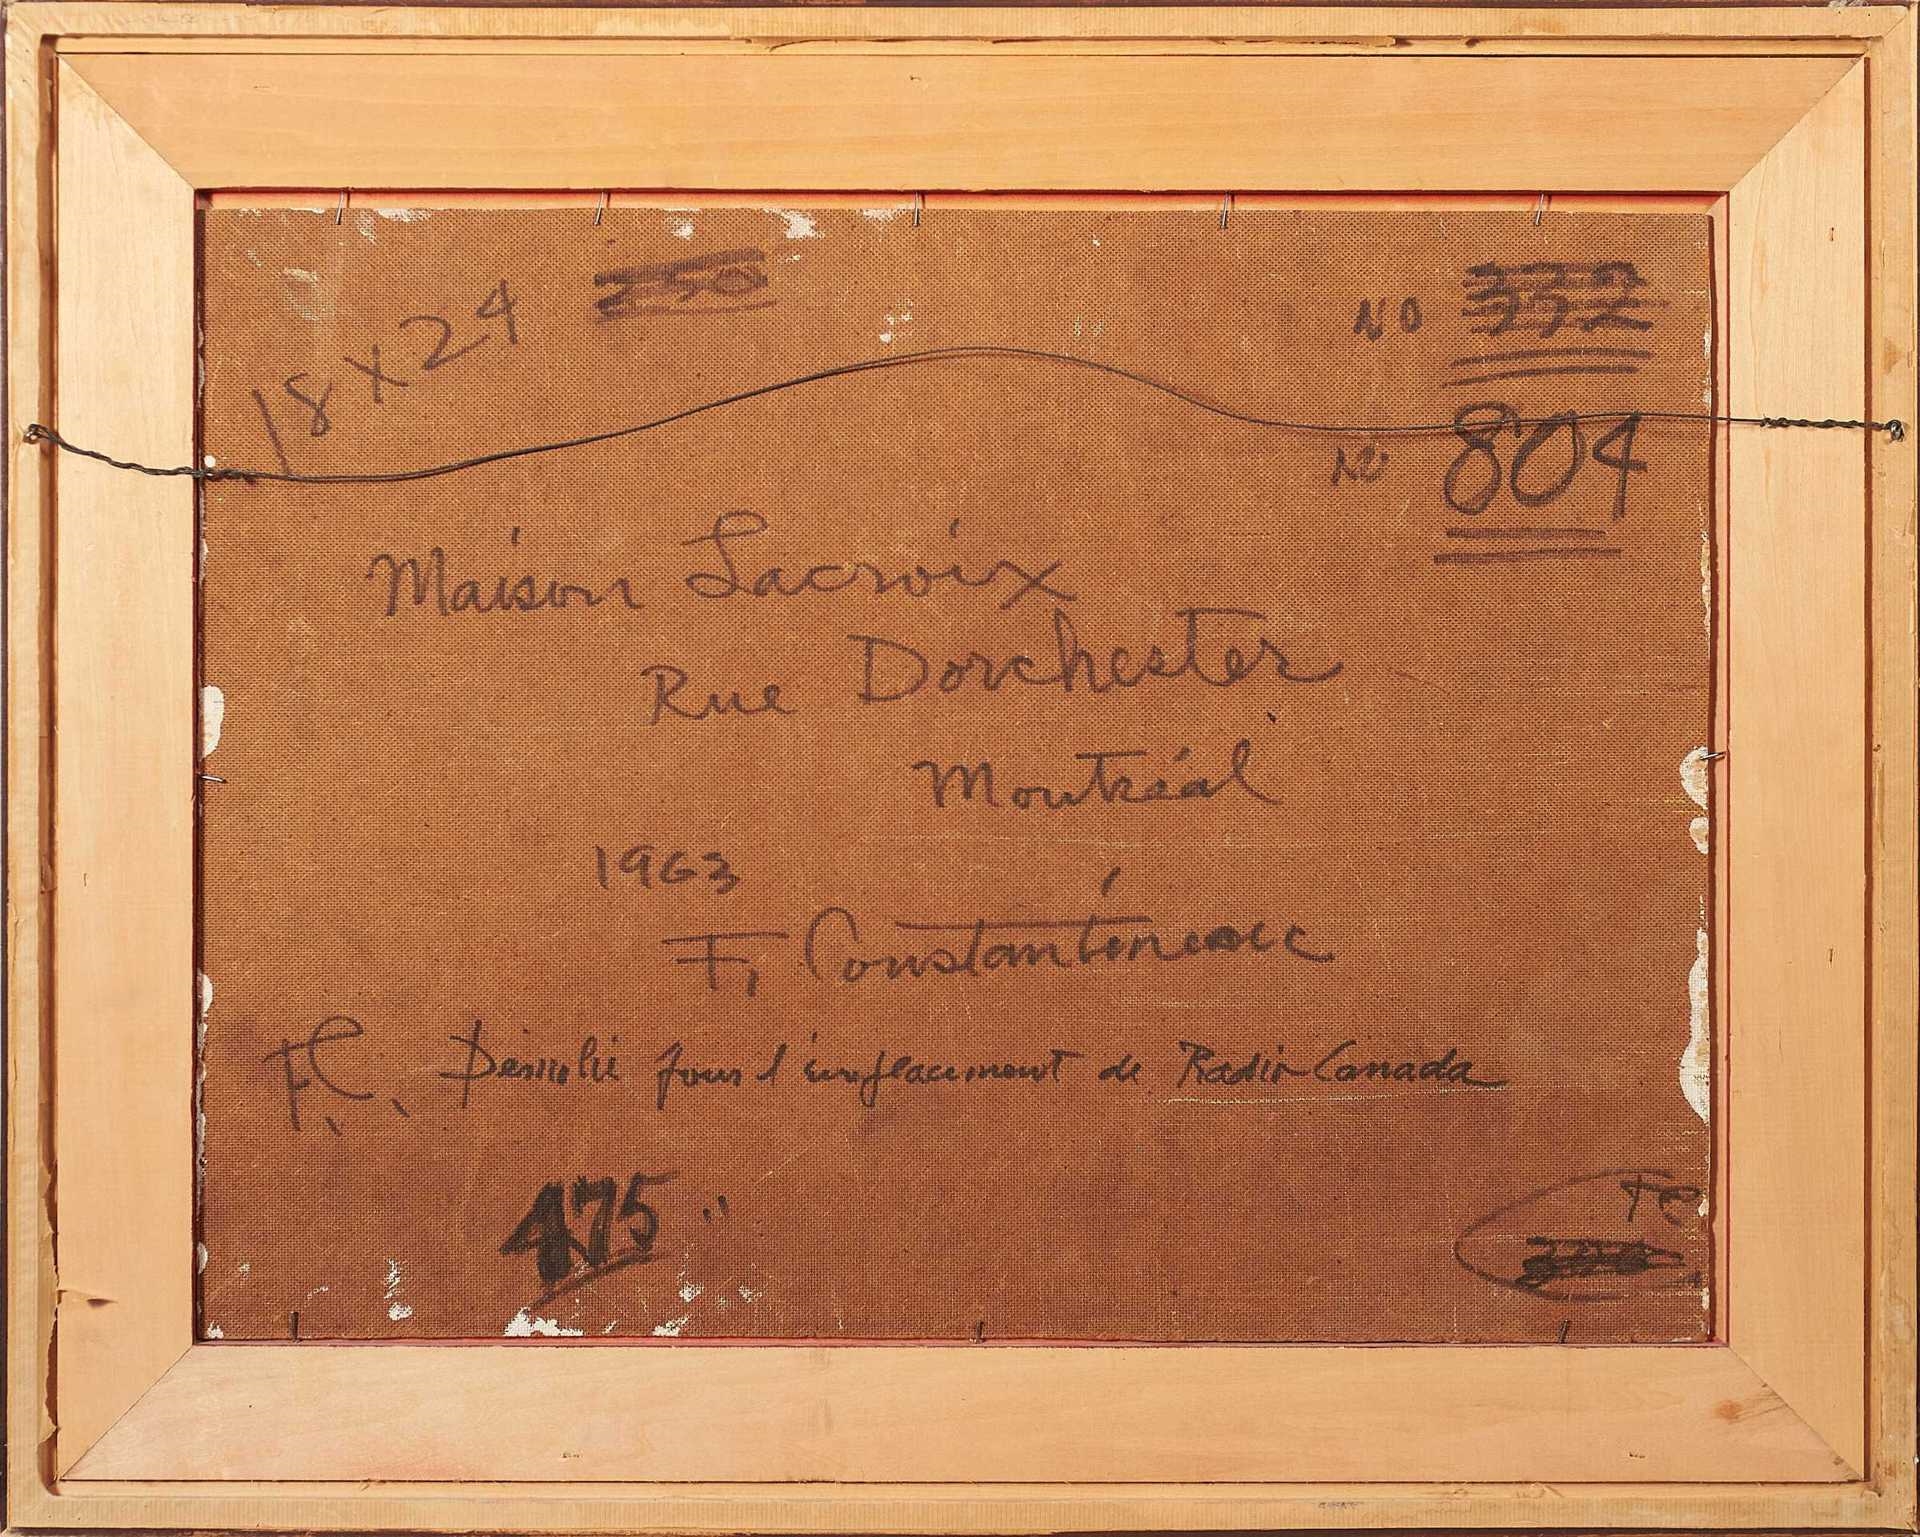 18 x 24
250
NO 332
NO 804
Maison Lacroix
Rue Dorchester
Montréal
1963
F. Constantineau
F.C. Demoli pour l'emplacement de Radio-Canada
475
FC